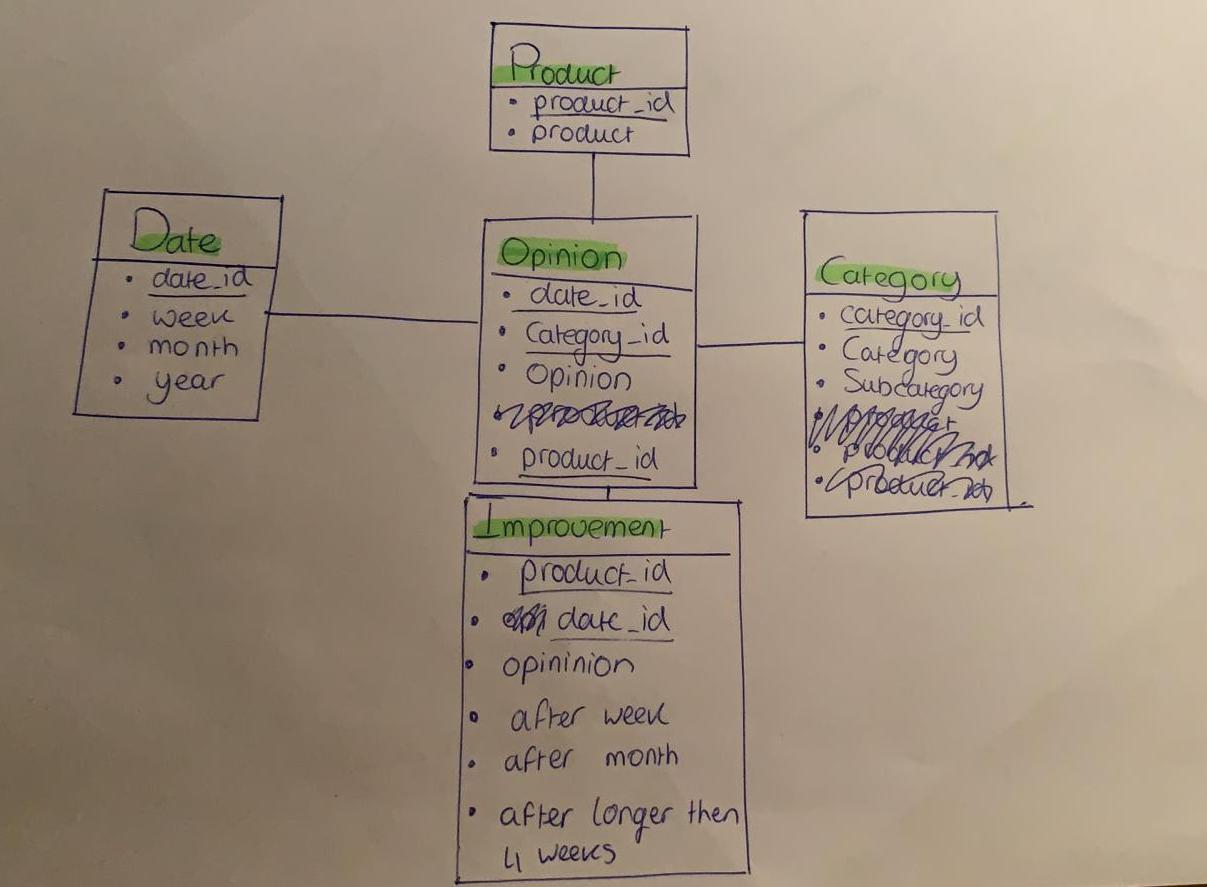 Product
• product_id
• product
Date
• date_id
• week
• month
• year
Opinion
• date_id
• Category_id
• Opinion
• product_id
Category
• category_id
• Category
• Subcategory
Improvement
• product_id
• date_id
• opininion
• after week
• after month
• after longer then
4 weeks